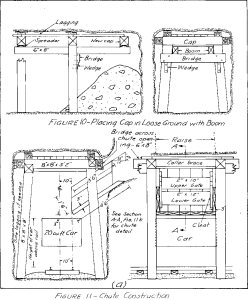 Lagging
Spreader
New cap
6"x8"
Bridge
Wedge
Cap
Boom
Bridge
Wedge
FIGURE 10-Placing Cap in Loose Ground with Boom
Bridge across
chute open-
ing-6"x8"
Raise
A
Collar brace
8"x8"x5'2"
10"
2"x10"
Upper Gate
2"x12"
Lower Gate
20 cu ft Car
See Section
A-A, Fig. 11b
for chute
detail
Cleat
A
Car
10"
(a)
FIGURE 11-Chute Construction